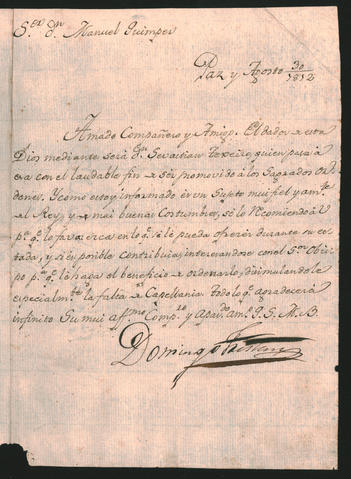 S.or Dn. Manuel Quimper
Paz y Agosto 30/1812
Amado Compañero y Amigo. El dador de esta
Dios mediante será Dn. Sevastian, quien pasa à
esa con el laudable fin de ser promovido à los sagrados Or-
denes. Y como estoy informado es un Sugeto mui fiel y am.te
el Rey, y de mui buenas Costumbres, se lo recomiendo à V.
p.a q.e lo favoresca en lo q.e se le pueda ofrecer durante su es-
tada, y si es posible contribuia, interesandose con el S.or Obis-
po p.a q.e le haga el beneficio de ordenarlo, disimulandole
especialm.te la falta de Capellania. Todo lo q.e agradecerá
infinito Su mui aff.mo Comp.ro y Apas.do Am.o Q. S. M. B.
Domingo Tristan